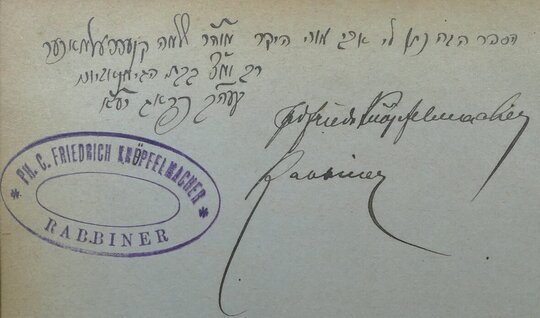 הספר הזה נתן לי אבי מורי היקר מוהר שלמה
רב ומ״צ
פראג יע״א
Friedrich Knöpfelmacher
Rabbiner
PH. C. FRIEDRICH KNÖPFELMACHER
RABBINER